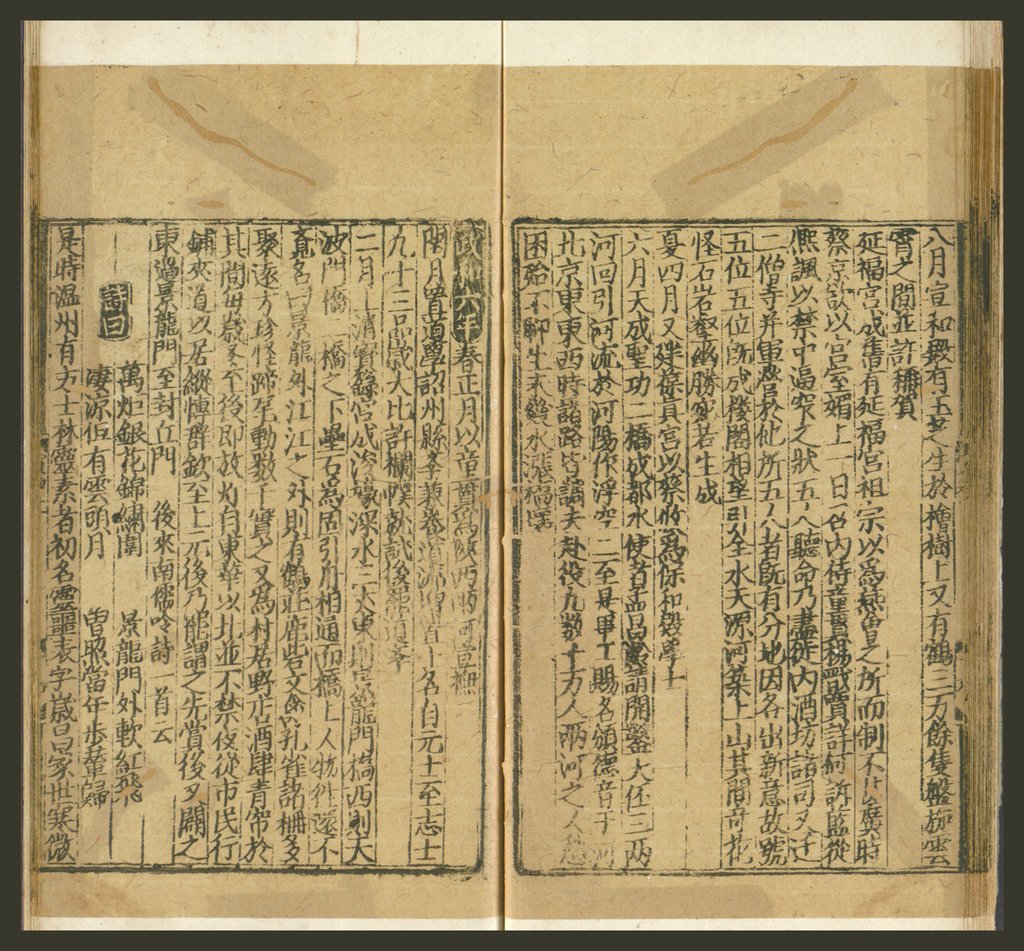 八月宣和殿有玉芝生於檜樹上又有鶴三万餘隻盤旋雲
霄之間並許稱賀
延福宮成舊有延福宮祖宗以爲燕會之所而制不廣時
蔡京欲以宮室媚上一日召内侍童貫楊戩賈詳何訴藍從
熙諷以禁中逼窄之狀五人聽命乃盡徙内酒坊諸司又迁
二僧寺并軍營於他所五人者既有分地因各出新意故號
五位五位既成樓閣相望引金水天源河築土山其間奇花
怪石岩壑幽勝宛若生成
夏四月又建葆真宮以蔡攸爲保和殿學士
六月天成聖功二橋成都水使者孟昌齡請開鑿大伾三兩
河回引河流於河陽作浮空二至是畢工賜名頒德音于河
北京東東西時諸路皆調夫赴役凡數十万人兩河之人愁
困殆不聊生未幾水漲橋壞
政和六年春正月以童貫爲陝西兩河宣撫
閏月置道學詔州縣學兼養道流增置士名自元士至志士
九十三品歲大比許襴幞就試後罷道學
二月上清寶籙宮成浚濠深水三丈東則景龍門橋西則天
波門橋二橋之下壘石爲固引舟相通而橋上人物往還不
覺名曰景龍外江江之外則有鶴莊鹿砦文禽孔雀諸柵多
聚遠方珍怪蹄尾動數千實之又爲村居野店酒肆青帘於
其間每歲冬至後即放灯自東華以北並不禁夜從市民行
鋪夾道以居縱博群飲至上元後乃罷謂之先賞後又闢之
東過景龍門至封丘門 後來南儒吟詩一首云
詩曰 萬炬銀花錦繡圍 景龍門外軟紅飛
淒涼但有雲頭月 曾照當年步輦歸
是時温州有方士林靈素者初名靈噩表字歲昌家世寒微